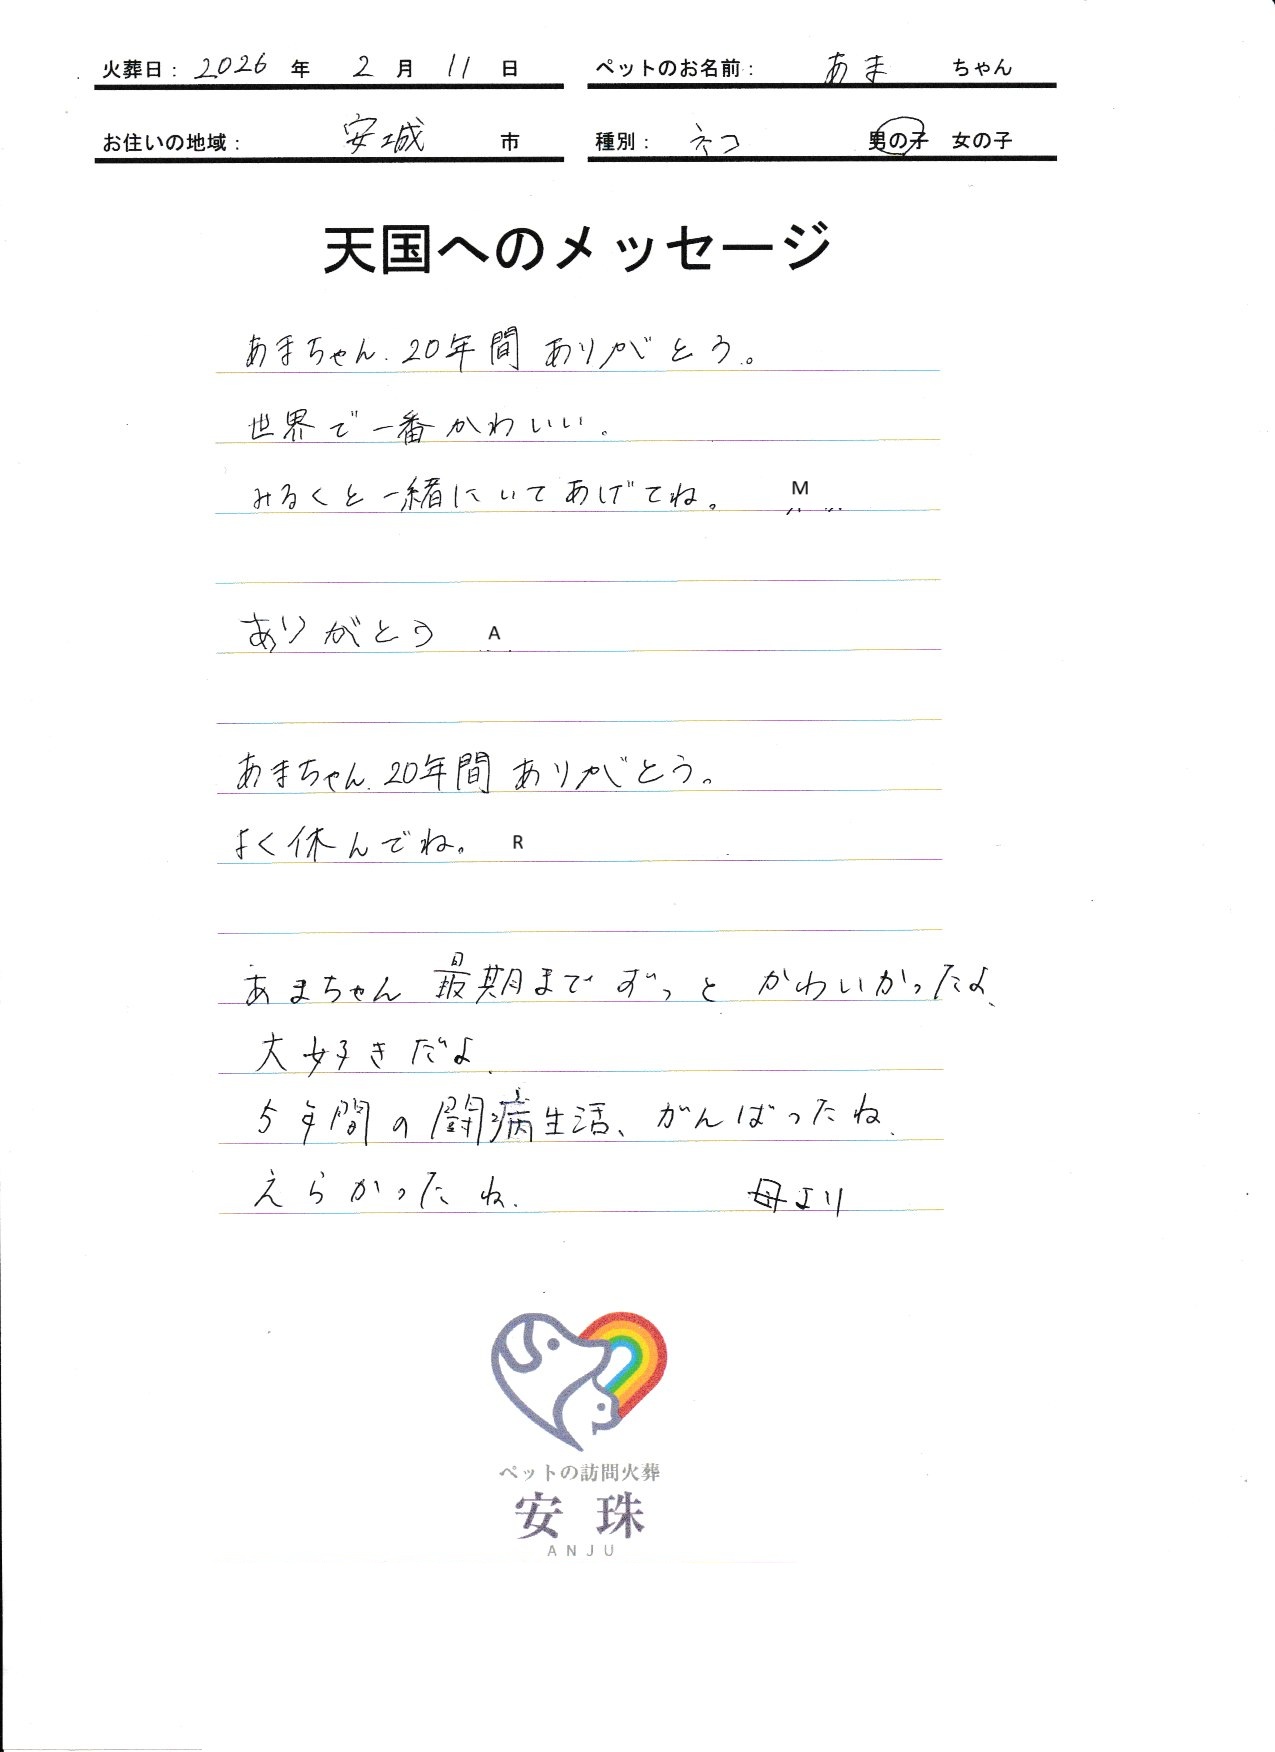 火葬日： 2026 年 2 月 11 日
ペットのお名前： あま ちゃん
お住いの地域： 安城 市
種別： ネコ 男の子 女の子
天国へのメッセージ
あまちゃん、20年間 ありがとう。
世界で一番かわいい。
みるくと一緒にいてあげてね。 M
ありがとう A
あまちゃん、20年間 ありがとう。
よく休んでね。 R
あまちゃん 最期まで ずっと かわいかったよ、
大好きだよ、
5年間の闘病生活、がんばったね、
えらかったね、 母より
ペットの訪問火葬
安珠
ANJU